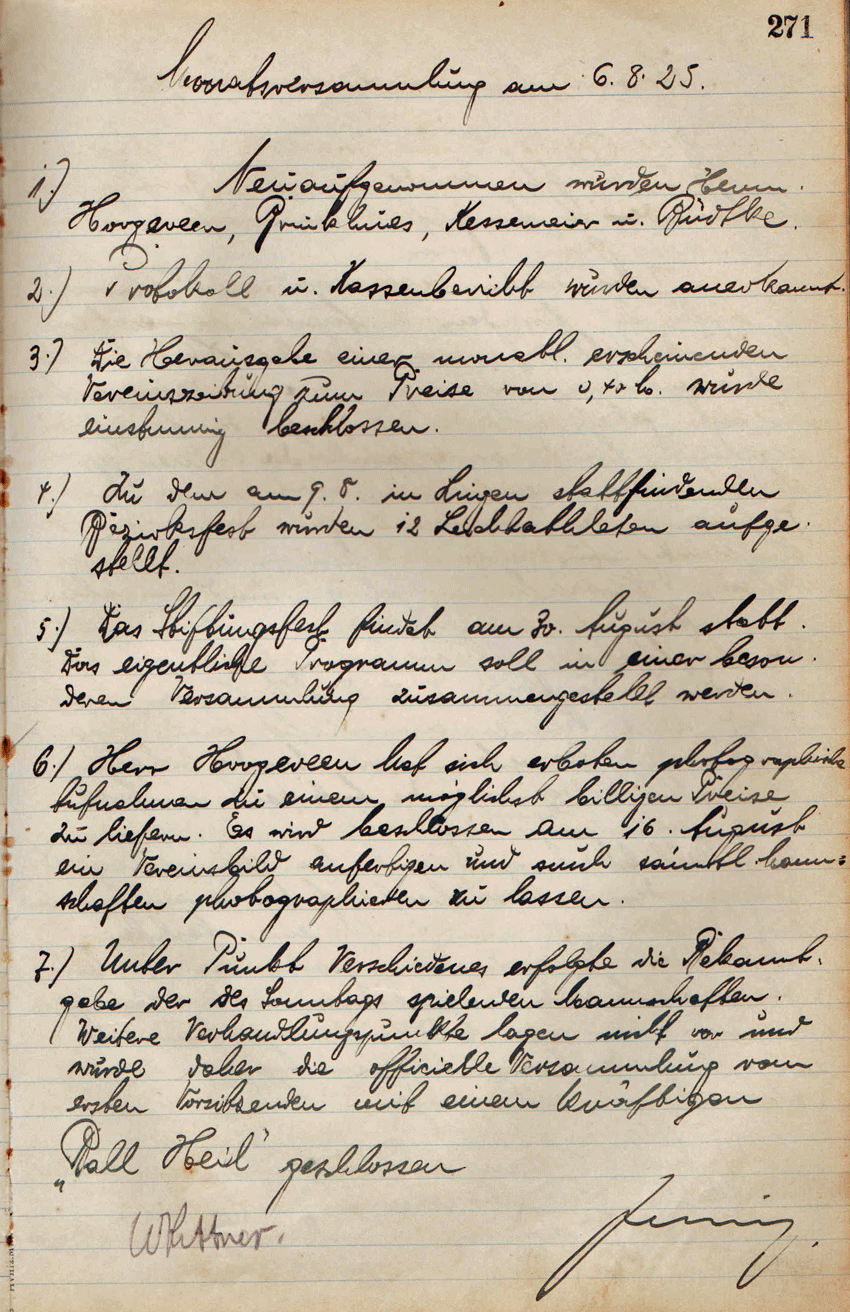 271
Monatsversammlung am 6.8.25.
1.) Neuaufgenommen wurden Herrn
Hoogeveen, Kessemeier u. Büdtke.
2.) Protokoll u. Kassenbericht wurden anerkannt.
3.) Die Herausgabe einer monatl. erscheinenden
Vereinszeitung zum Preise von wurde
einstimmig beschlossen.
4.) Zu dem am 9.8. in Lingen stattfindenden
Bezirksfest wurden 12 Leichtathleten aufge
stellt.
5.) Das Stiftungsfest findet am 30. August statt.
Das eigentliche Programm soll in einer beson
deren Versammlung zusammengestellt werden.
6.) Herr Hoogeveen hat sich erboten photographische
Aufnahmen zu einem möglichst billigen Preise
zu liefern. Es wird beschlossen am 16. August
ein Vereinsbild anfertigen und auch sämtl. Mann=
schaften photographieren zu lassen.
7.) Unter Punkt Verschiedenes erfolgte die Bekannt-
gabe der des Sonntags spielenden Mannschaften.
Weitere Verhandlungspunkte lagen nicht vor und
wurde daher die officielle Versammlung vom
ersten Vorsitzenden mit einem kräftigen
„Ball Heil" geschlossen